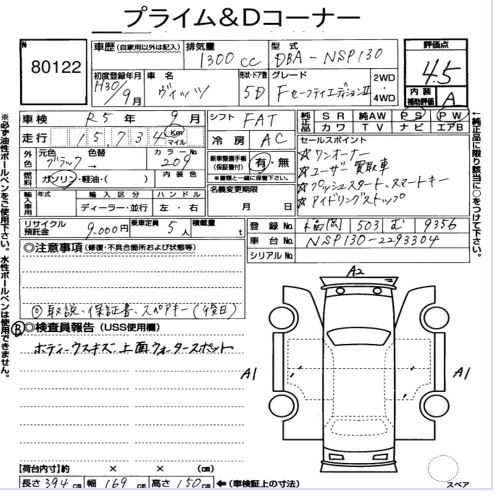 プライム&Dコーナー
No
80122
車歴 (自家用以外は記入)
排気量 1300 cc
型式 DBA-NSP130
評価点 4.5
内装補助評価 A
初度登録年月 H30/9月
車名 ヴィッツ
形状・ドア数 5D
グレード FセーフティエディションⅡ
2WD・4WD
車検 R5年 9月
シフト FAT
走行 15,734 Km マイル
冷房 AC
純正品 SR 純AW PS PW
カワ TV ナビ エアB
外色 元色 ブラック 色替 カラーNo. 209
新車整備手帳(保証書付) 有・無
※一緒に保管して下さい。
燃料 ガソリン・軽油・( ) 内装色
名義変更期限 月 日
セールスポイント
☆ワンオーナー
☆ユーザー買取車
☆プッシュスタート、スマートキー
☆アイドリングストップ
輸入車 年式 輸入区分 ハンドル
年 ディーラー・並行 左・右
リサイクル預託金 9,000円 乗車定員 5人 積載量 t
登録No. 福岡 503 む 9356
車台No. NSP130-2293304
シリアルNo.
◎注意事項 (修復・不具合箇所および状態等)
◎取説、保証書、スペアキー(後日)
Ⓑ◎検査員報告 (USS使用欄)
ボディーウスキズ、上面ウォータースポット
A2
A1
A1
【荷台内寸】約 × × (cm)
長さ 394cm 幅 169cm 高さ 150cm ←(車検証上の寸法)
スペア
※必ず油性ボールペンをご使用下さい。水性ボールペンは使用できません。
※純正品に限り該当に○をつけて下さい。